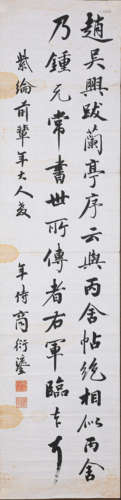 趙吳興跋蘭亭序云與丙舍帖絶相似丙舍
乃鍾元常書世所傳者右軍臨者也
紫綸前輩年大人教
年侍商衍鎏